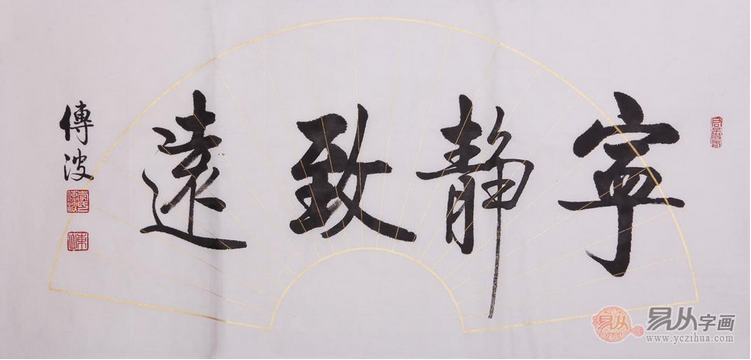 寧静致遠
傅波
易从字画
www.yczihua.com